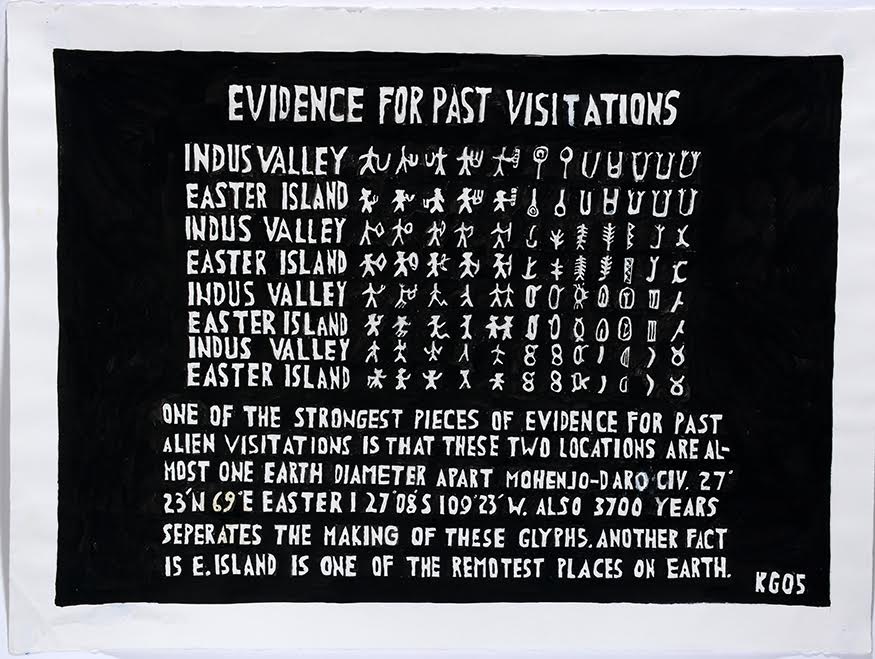 EVIDENCE FOR PAST VISITATIONS
INDUS VALLEY
EASTER ISLAND
INDUS VALLEY
EASTER ISLAND
INDUS VALLEY
EASTER ISLAND
INDUS VALLEY
EASTER ISLAND
ONE OF THE STRONGEST PIECES OF EVIDENCE FOR PAST
ALIEN VISITATIONS IS THAT THESE TWO LOCATIONS ARE AL-
MOST ONE EARTH DIAMETER APART MOHENJO-DARO CIV. 27°
23'N 69°E EASTER I 27°08'S 109°23'W. ALSO 3700 YEARS
SEPERATES THE MAKING OF THESE GLYPHS. ANOTHER FACT
IS E. ISLAND IS ONE OF THE REMOTEST PLACES ON EARTH.
KG05